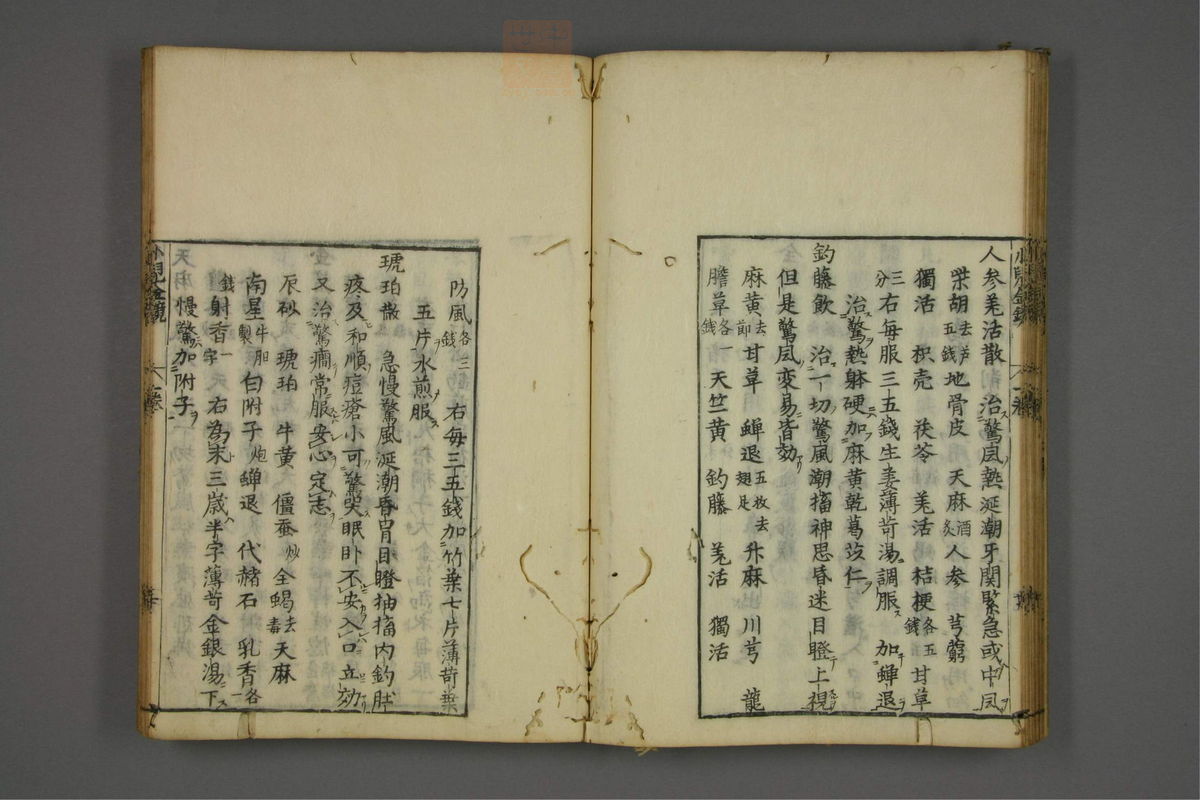 人参羗活散　治驚風熱涎潮牙関緊急或中風
柴胡去芦五銭地骨皮　天麻酒炙人参　芎藭
獨活　枳壳　茯苓　羗活　桔梗各五銭甘草
三分右毎服三五錢生姜薄苛湯調服　加蟬退
治驚熱躰硬加麻黄乾葛
釣藤飲　治一切驚風潮搐神思昏迷目瞪上視
但是驚風変易皆効
麻黄去節甘草　蟬退五枚去翅足升麻　川芎　龍
膽草各一銭　天竺黄　釣藤　羗活　獨活
防風各三銭　右毎三五錢加竹葉七片薄苛葉
五片水煎服
琥珀散　急慢驚風涎潮昏冐目瞪抽搐内釣肚
疼及和順痘瘡小可驚哭眠卧不安入口立効
又治驚癇常服安心定志
辰砂　琥珀　牛黄　僵蚕炒全蝎去毒天麻
南星牛胆製白附子炮蟬退　代赭石　乳香各一
銭射香一字　右為末三歳半字薄苛金銀湯下
慢驚加附子
小児全鏡